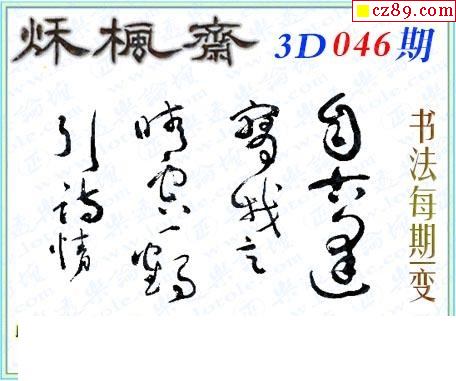 cz89.com
秌楓齋
3D046期
自古逢
寥我言
晴空一鶴
引诗情
书法每期一变